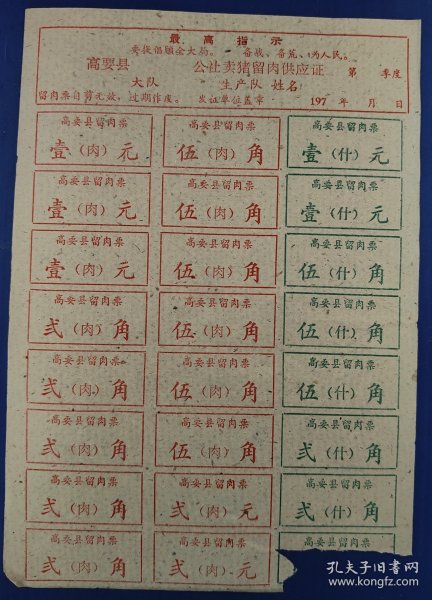 最高指示
要提倡顾全大局。 备战、备荒、为人民。
高要县 公社卖猪留肉供应证 第 季度
大队 生产队 姓名
留肉票自剪无效,过期作废。 发证单位盖章 197 年 月 日
高要县留肉票 高要县留肉票 高要县留肉票
壹(肉)元 伍(肉)角 壹(什)元
高要县留肉票 高要县留肉票 高要县留肉票
壹(肉)元 伍(肉)角 壹(什)元
高要县留肉票 高要县留肉票 高要县留肉票
壹(肉)元 伍(肉)角 伍(什)角
高要县留肉票 高要县留肉票 高要县留肉票
弍(肉)角 伍(肉)角 伍(什)角
高要县留肉票 高要县留肉票 高要县留肉票
弍(肉)角 伍(肉)角 伍(什)角
高要县留肉票 高要县留肉票 高要县留肉票
弍(肉)角 伍(肉)角 弍(什)角
高要县留肉票 高要县留肉票 高要县留肉票
弍(肉)角 弍(肉)元 弍(什)角
高要县留肉票 高要县留肉票
弍(肉)角 弍(肉)元
孔夫子旧书网
www.kongfz.com